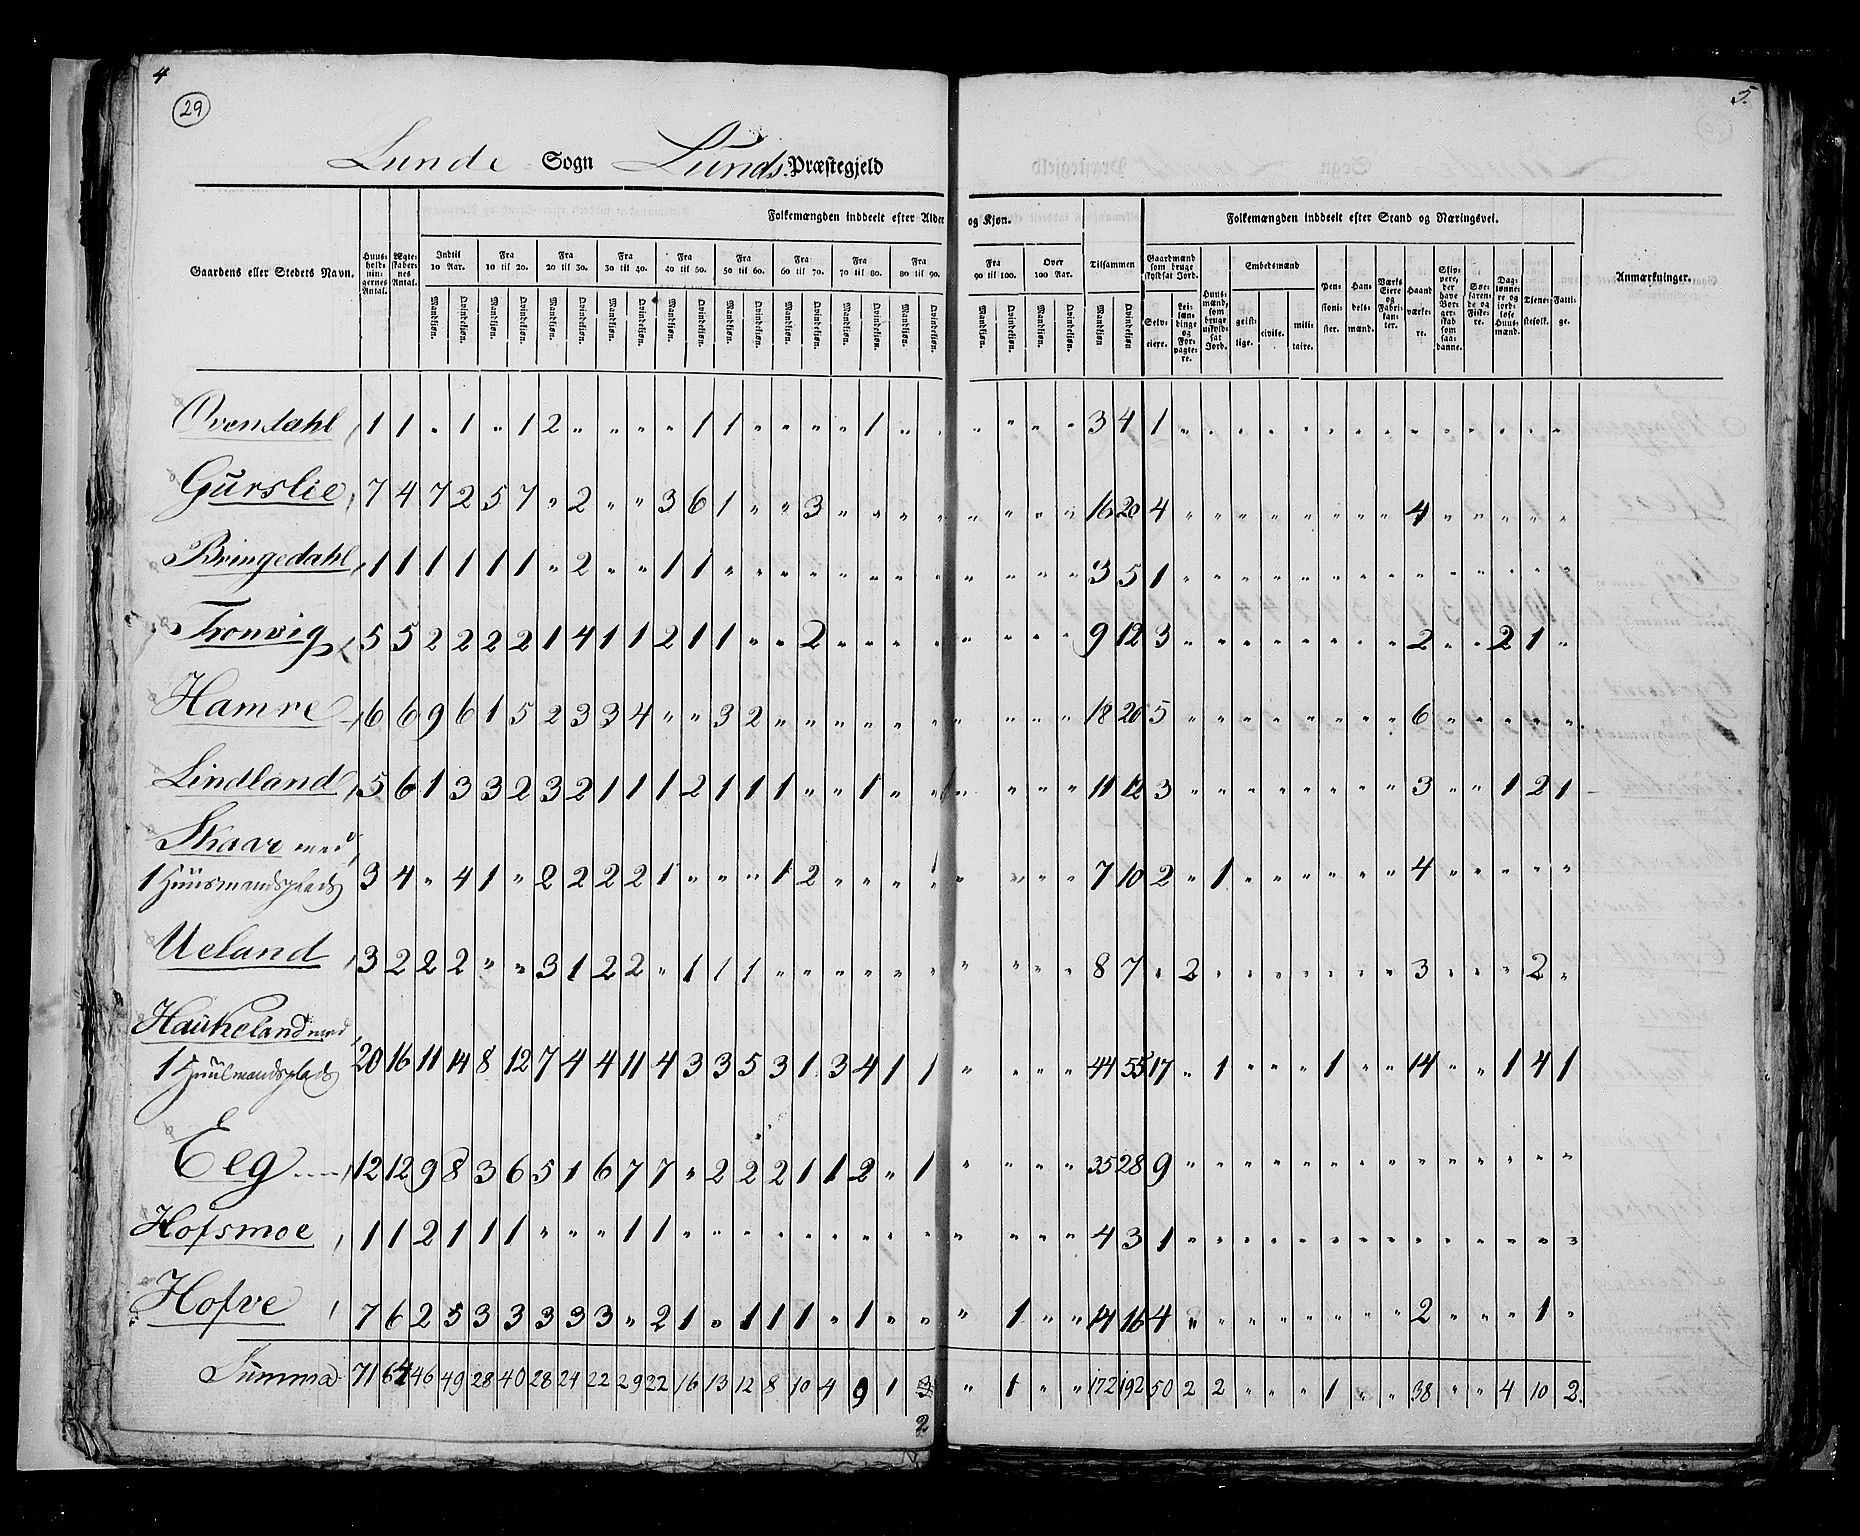 4
5.
29
Lunde Sogn Lunds Præstegjeld
Gaardens eller Steders Navn. Huus-holdnin-gernes Antal. Ægte-skaber-nes Antal. Folkemængden inddeelt efter Alder og Kjøn. Tilsammen Folkemængden inddeelt efter Stand og Næringsvei. Anmærkninger.
Indtil 10 Aar. Fra 10 til 20. Fra 20 til 30. Fra 30 til 40. Fra 40 til 50. Fra 50 til 60. Fra 60 til 70. Fra 70 til 80. Fra 80 til 90. Fra 90 til 100. Over 100 Aar. Gaardmænd som bruge skyldsat Jord. Huus-mænd, som bruge uskyld-sat Jord. Embedsmænd Pen-sioni-ster. Han-dels-mænd. Værks Eiere og Fabri-kan-ter. Haand-værke-re. Slip-pere, der have Bor-ger-skab som saa-danne. Søe-faren-de og Fiske-re. Dag-lønne-re og jord-løse Huus-mænd. Tjene-stefolk. Fatti-ge.
Mandkjøn. Qvindekjøn. Mandkjøn. Qvindekjøn. Mandkjøn. Qvindekjøn. Mandkjøn. Qvindekjøn. Mandkjøn. Qvindekjøn. Mandkjøn. Qvindekjøn. Mandkjøn. Qvindekjøn. Mandkjøn. Qvindekjøn. Mandkjøn. Qvindekjøn. Mandkjøn. Qvindekjøn. Mandkjøn. Qvindekjøn. Mandkjøn Qvindekjøn Selv-eiere. Lei-læn-dinge og For-pagte-re. geist-lige. civile. mili-taire.
Ovendahl 1 1 „ 1 „ 1 2 „ „ „ „ 1 1 „ „ „ „ 1 „ „ „ „ „ „ 3 4 1 „ „ „ „ „ „ „ „ „ „ „ „ „ „
Gurslie 7 4 7 2 5 7 „ 2 „ „ 3 6 1 „ „ 3 „ „ „ „ „ „ „ „ 16 20 4 „ „ „ „ „ „ „ „ 4 „ „ „ „ „
Bringedahl 1 1 1 1 1 1 „ 2 „ „ 1 1 „ „ „ „ „ „ „ „ „ „ „ „ 3 5 1 „ „ „ „ „ „ „ „ „ „ „ „ „ „
Tronvig 5 5 2 2 2 2 1 4 1 1 2 1 1 „ „ 2 „ „ „ „ „ „ „ „ 9 12 3 „ „ „ „ „ „ „ „ 2 „ „ 2 1 „
Hamre 6 6 9 6 1 5 2 3 3 4 „ „ 3 2 „ „ „ „ „ „ „ „ „ „ 18 20 5 „ „ „ „ „ „ „ „ 6 „ „ „ „ „
Lindland 5 6 1 3 3 2 3 2 1 1 1 2 1 1 1 „ „ 1 „ „ „ „ „ „ 11 12 3 „ „ „ „ „ „ „ „ 3 „ „ 1 2 1
Skaar med
1 Huusmandsplads 3 4 „ 4 1 „ 2 2 2 2 1 „ „ „ 1 2 „ „ „ „ „ „ „ 7 10 2 „ 1 „ „ „ „ „ „ 4 „ „ „ „ „
Ueland 3 2 2 2 „ „ 3 1 2 2 „ 1 1 1 „ „ „ „ „ „ „ „ „ „ 8 7 „ 2 „ „ „ „ „ „ „ 3 „ „ „ 2 „
Haukeland med
1 Huusmandsplads 20 16 11 14 8 12 7 4 4 11 4 3 3 5 3 1 3 4 1 1 „ „ „ „ 44 55 17 „ 1 „ „ „ 1 „ „ 14 „ „ 1 4 1
Eeg 12 12 9 8 3 6 5 1 6 7 7 „ 2 2 2 1 1 2 „ 1 „ „ „ „ 35 28 9 „ „ „ „ „ „ „ „ „ „ „ „ „ „
Hofsmoe 1 1 2 1 1 1 „ „ „ 1 1 „ „ „ „ „ „ „ „ „ „ „ „ „ 4 3 1 „ „ „ „ „ „ „ „ „ „ „ „ „ „
Hofve 7 6 2 5 3 3 3 3 3 „ 2 1 „ 1 1 1 „ 1 „ „ „ 1 „ „ 14 16 4 „ „ „ „ „ „ „ „ 2 „ „ „ 1 „
Summa 71 64 46 49 28 40 28 24 22 29 22 16 13 12 8 10 4 9 1 3 „ 1 „ „ 172 192 50 2 2 „ „ „ 1 „ „ 38 „ „ 4 10 2.
2